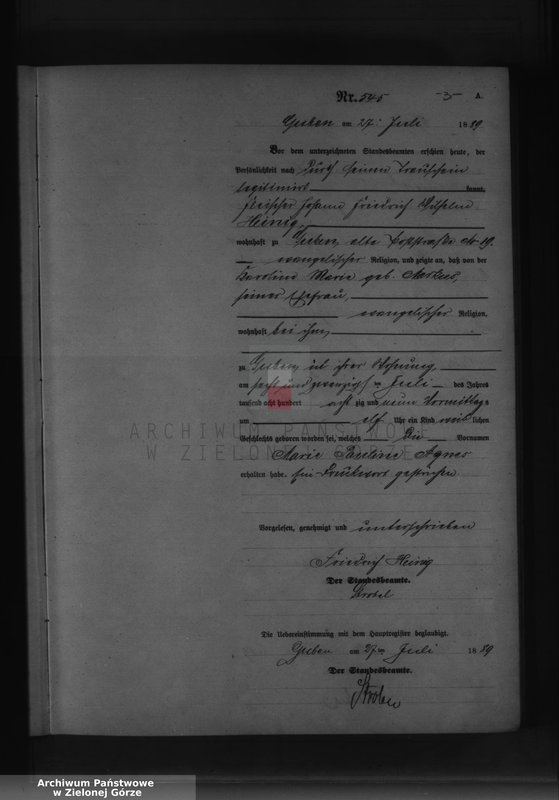 Nr. 545
- 3 - A.
Guben am 27. Juli 1889
Vor dem unterzeichneten Standesbeamten erschien heute, der
Persönlichkeit nach durch seinen Trauschein
legitimirt kannt,
Fleischer Johann Friedrich Wilhelm
Heinig,
wohnhaft zu Guben, alte Poststraße Nr. 19.
evangelischer Religion, und zeigte an, daß von der
Karoline Marie geb. Markus,
seiner Ehefrau,
evangelischer Religion,
wohnhaft bei ihm,
zu Guben, in ihrer Wohnung,
am sechs und zwanzigsten Juli des Jahres
tausend acht hundert achtzig und neun Vormittags
um elf Uhr ein Kind weiblichen
Geschlechts geboren worden sei, welches die Vornamen
Marie Pauline Agnes
erhalten habe. Ein Druckwort gestrichen.
Vorgelesen, genehmigt und unterschrieben
Friedrich Heinig
Der Standesbeamte.
Strobel
Die Uebereinstimmung mit dem Hauptregister beglaubigt.
Guben am 27ten Juli 1889
Der Standesbeamte.
ARCHIWUM PAŃSTWOWE
W ZIELONEJ GÓRZE
Archiwum Państwowe
w Zielonej Górze